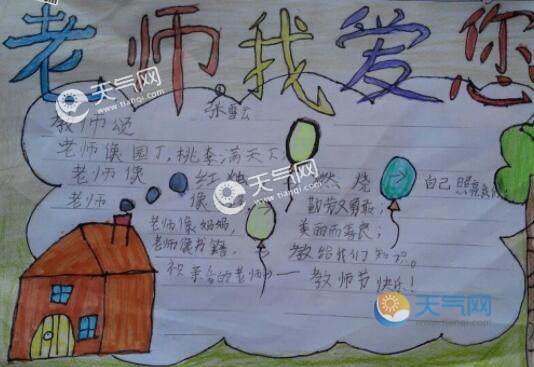 老师我爱您
天气网
www.tianqi.com
教师颂
老师像园丁,桃李满天下。
老师像 红烛 燃烧 自己
老师 像
勤劳又勇敢;
老师像妈妈,
美丽而善良;
老师像书籍,
教给我们知识。
祝亲爱的老师们——
教师节快乐!
天气网
www.tianqi.com
天气网
www.tianqi.com